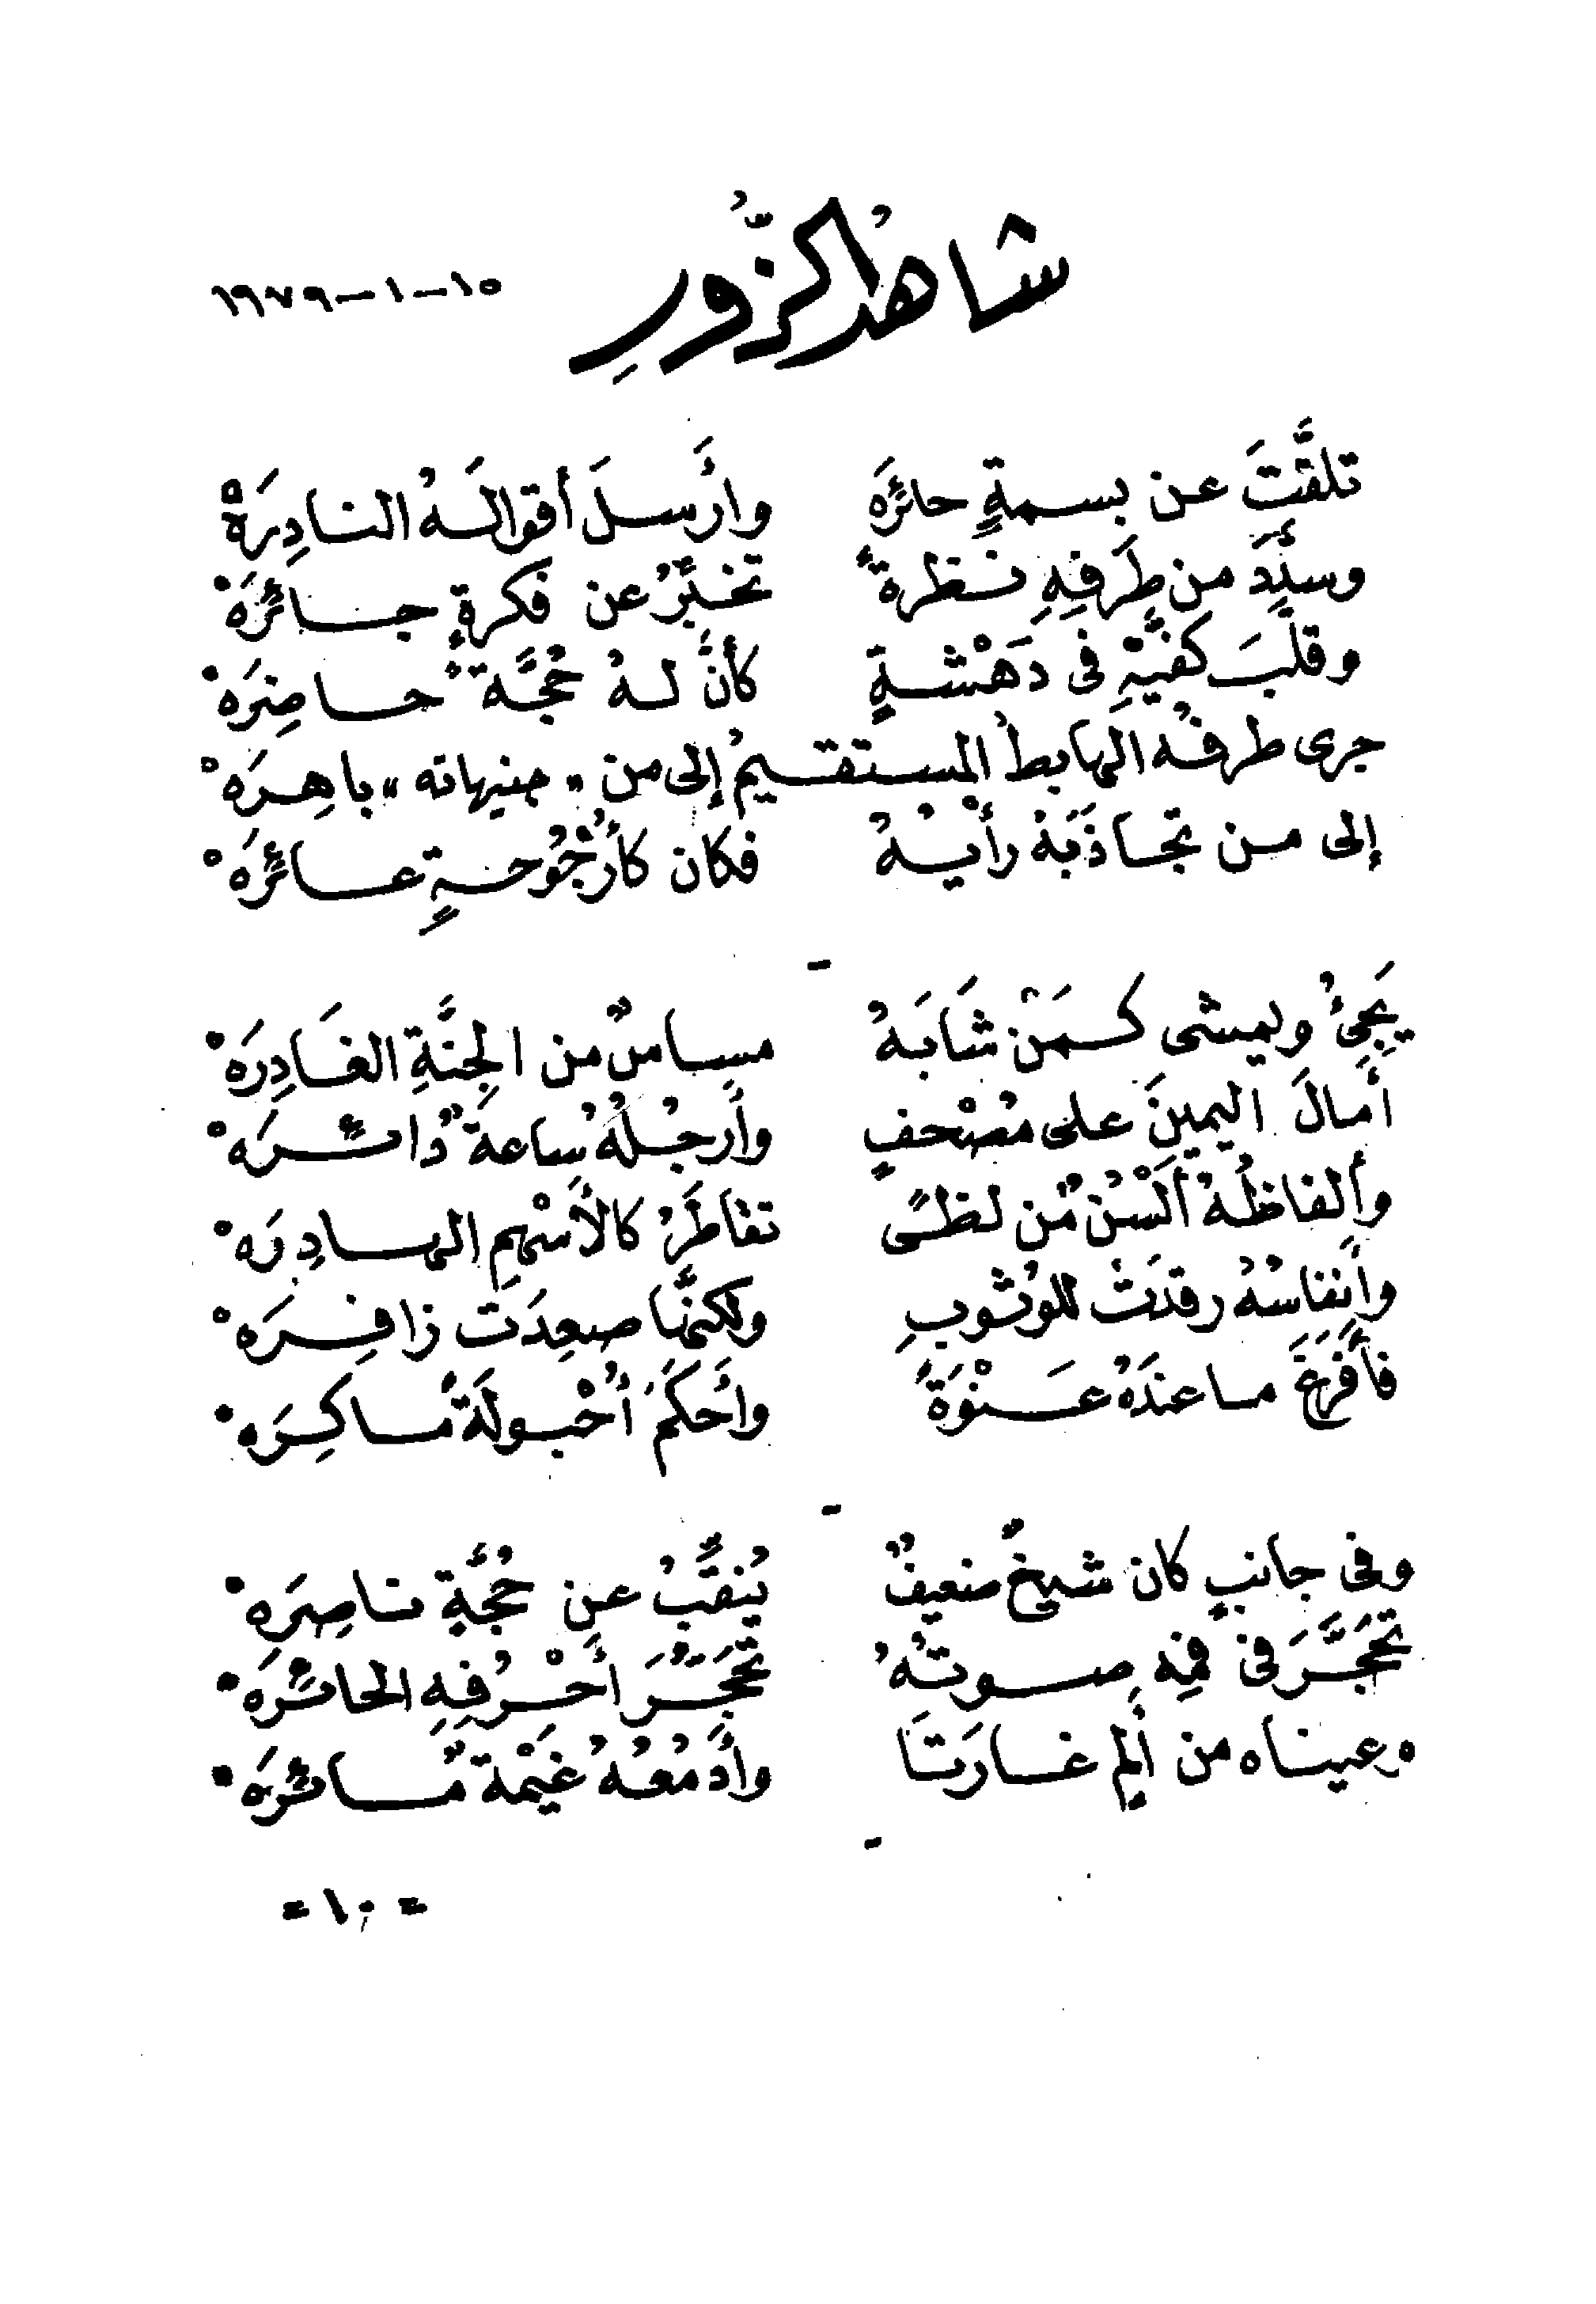 شاهدُ الزُّورِ
١٥-١-١٩٧٩
تلفَّتَ عن بسمةٍ حائرَه وأَرسلَ أقوالَهُ النادِرَهْ
وسدَّدَ من طَرفِهِ نظرةً تخبِّرُ عن فكرةٍ جائرَهْ
وقلَّبَ كفيَّهِ في دَهْشةٍ كأنَّ لهُ حُجَّةً حاضِرَهْ
جرى طرفُه الهابطُ المستقيمُ إلى من « جنيهاته » باهِرَهْ
إلى من تجاذَبَهُ رأيُهُ فكان كأُرْجُوحةٍ عائرَهْ
يَجِئُ ويمشى كمَنْ شَابَهُ مساسٌ من الجِنَّةِ الغَادِرَهْ
أَمالَ اليمينَ على مُصْحفٍ وأَرجُلُهُ ساعةً دائرَهْ
وألفاظُهُ ألْسُنٌ من لظىً تقاطَرُ كالأَسْهمِ الهادِرَهْ
وأَنفاسُهُ رقدَتْ للوُثوبِ ولكنَّها صعِدَت زافِرَهْ
فأَفرَغَ ما عندَهُ عَنْوَةً وأَحكَمَ أُحْبولَةً ماكِرَهْ
وفى جانبٍ كان شيخٌ ضعيفٌ يُنقِّبُ عن حُجَّةٍ ناصِرَهْ
تحَجَّرَ فى فمِهِ صوتُهُ تحَجُّرَ أَحْرُفِهِ الحائرَهْ
وعيناه من أَلمٍ غارَتَا وأَدمُعُهُ غَيْمةٌ مائرَهْ
= ١٠ =